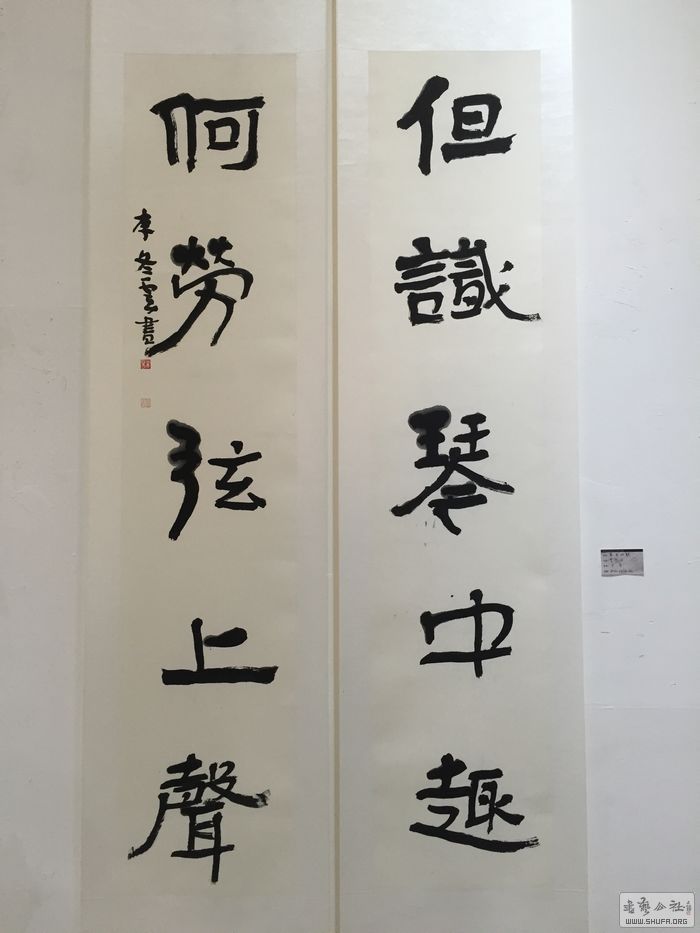 但識琴中趣
何勞弦上聲
李冬雲書
書藝公社
WWW.SHUFA.ORG